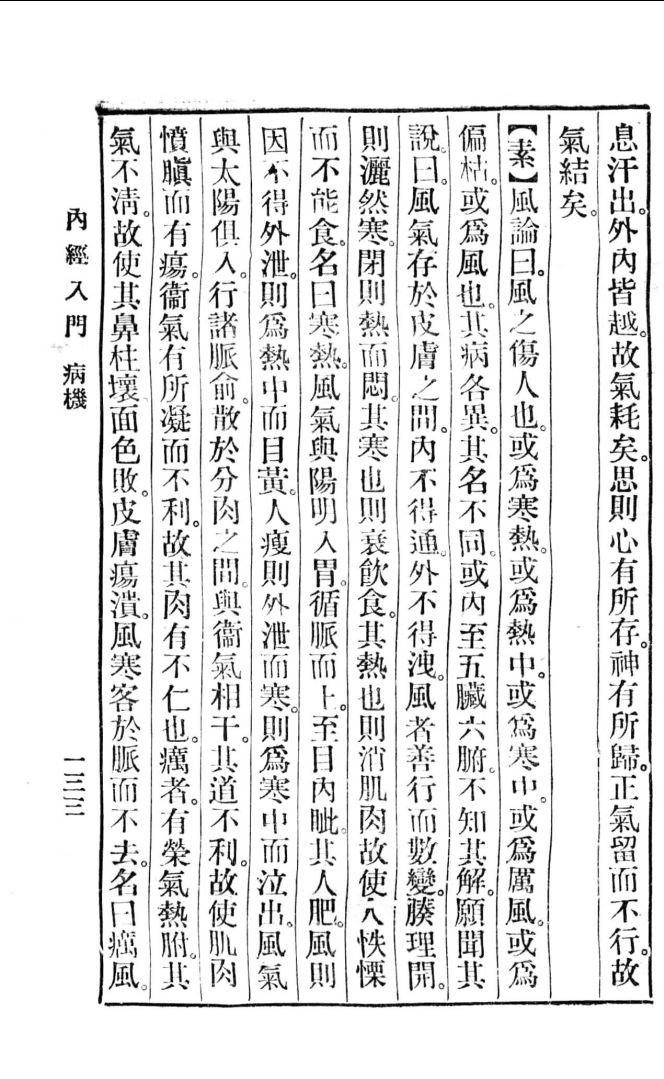 息汗出。外內皆越。故氣耗矣。思則心有所存。神有所歸。正氣留而不行。故
氣結矣。
【素】風論曰。風之傷人也。或爲寒熱。或爲熱中。或爲寒中。或爲厲風。或爲
偏枯。或爲風也。其病各異。其名不同。或內至五臟六腑。不知其解。願聞其
說。曰。風氣存於皮膚之間。內不得通。外不得洩。風者善行而數變。腠理開。
則灑然寒。閉則熱而悶。其寒也則衰飲食。其熱也則消肌肉。故使人怢慄
而不能食。名曰寒熱。風氣與陽明入胃。循脈而上。至目內眦。其人肥。風則
因不得外泄。則爲熱中而目黃。人瘦則外泄而寒。則爲寒中而泣出。風氣
與太陽俱入。行諸脈俞。散於分肉之間。與衞氣相干。其道不利。故使肌肉
憤䐜而有瘍。衞氣有所凝而不利。故其肉有不仁也。癘者。有榮氣熱胕。其
氣不淸。故使其鼻柱壞面色敗。皮膚瘍潰。風寒客於脈而不去。名曰癘風。
內經入門 病機
一三三